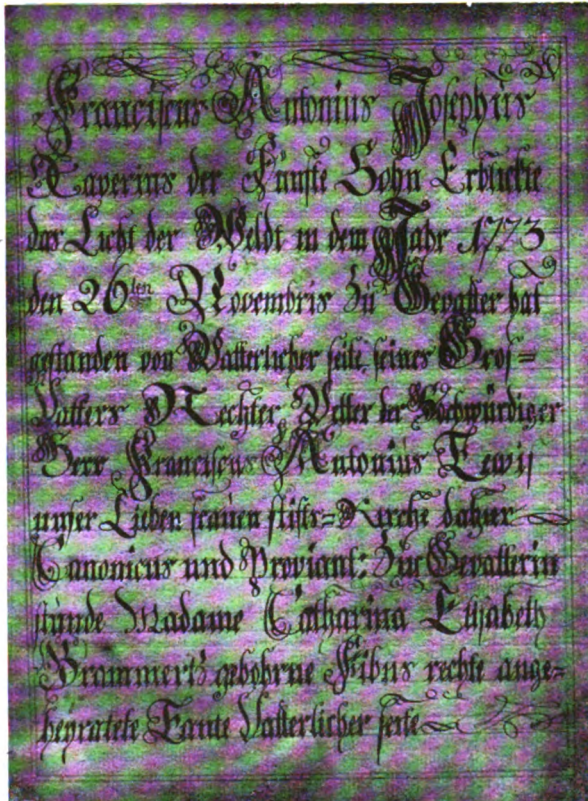 Franciscus Antonius Josephus
Xaverius der Fünfte Sohn Erblickte
das Licht der Weldt in dem Jahr 1773
den 26ten Novembris Zu Gevatter hat
gestanden von Vatterlicher seite seines Gros=
Vatters Rechter Vetter der Hochwürdiger
Herr Franciscus Antonius
unser Lieben frauen stifts=Kirche dahier
Canonicus und Proviant: Zur Gevatterin
stunde Madame Catharina Elisabeth
gebohrne rechte ange=
heyratete Tante Vatterlicher seite